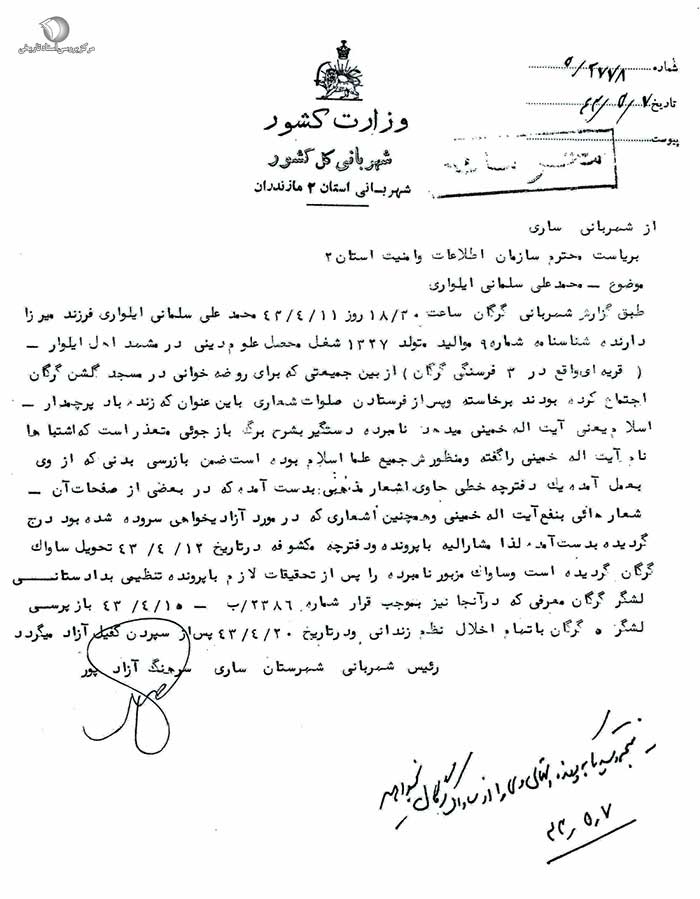 مرکز بررسی اسناد تاریخی
شماره ۵/۲۷۷۸
تاریخ ۴۳/۵/۷
پیوست
وزارت کشور
شهربانی کل کشور
شهربانی استان ۲ مازندران
از شهربانی ساری
بریاست محترم سازمان اطلاعات وامنیت استان ۲
موضوع – محمدعلی سلمانی ایلواری
طبق گزارش شهربانی گرگان ساعت ۱۸/۳۰ روز ۴۳/۴/۱۱ محمد علی سلمانی ایلواری فرزند میرزا
دارنده شناسنامه شماره ۹ موالید متولد ۱۳۲۷ شغل محصل علوم دینی در مشهد اهل ایلوار –
( قریه ای واقع در ۳ فرسنگی گرگان ) از بین جمعیتی که برای روضه خوانی در مسجد گلشن گرگان
اجتماع کرده بودند برخاسته وپس از فرستادن صلوات شعاری باین عنوان که زنده باد پرچمدار –
اسلام یعنی آیت اله خمینی میدهد نامبرده دستگیر بشرح برگ بازجوئی متعذر است که اشتبا ها
نام آیت اله خمینی راگفته ومنظورش جمیع علما اسلام بوده است ضمن بازرسی بدنی که از وی
بعمل آمده یک دفترچه خطی حاوی اشعار مذهبی بدست آمده که در بعضی از صفحات آن –
شعار هائی بنفع آیت اله خمینی وهمچنین اشعاری که در مورد آزادیخواهی سروده شده بود درج
گردیده بدست آمد لذا مشارالیه باپرونده ودفترچه مکشوفه درتاریخ ۴۳/۴/۱۲ تحویل ساواک
گرگان گردیده است وساواک مزبور نامبرده را پس از تحقیقات لازم باپرونده تنظیمی بدادستانی
لشگر گرگان معرفی که درآنجا نیز بموجب قرار شماره ۲۳۸۶/ب – ۴۳/۴/۱۵ بازپرسی
لشگر ۵ گرگان باتهام اخلال نظم زندانی ودرتاریخ ۴۳/۴/۲۰ پس از سپردن کفیل آزاد میگردد
رئیس شهربانی شهرستان ساری سرهنگ آزاد پور
۴۳/۵/۷